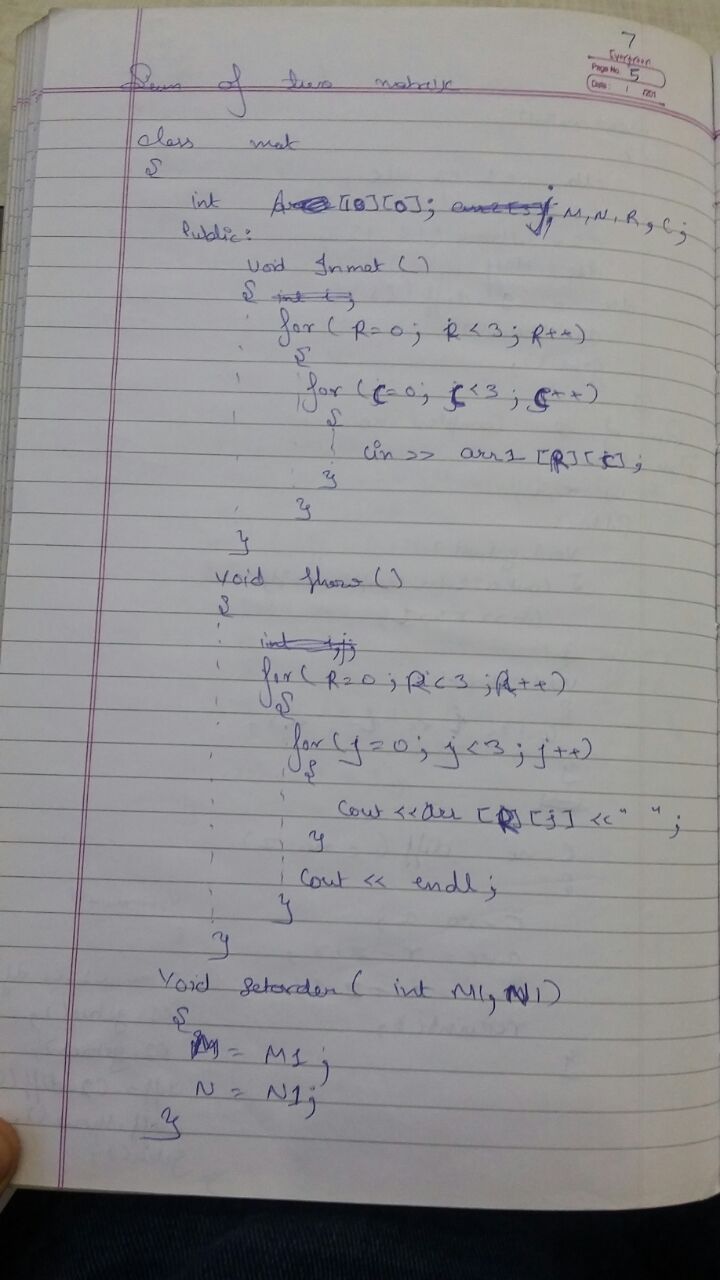 7
Evergreen
Page No. 5
Date: / /201
Sum of two matrix
class mat
{
int A [10][10]; M, N, R, C;
Public:
void Inmat ()
{ int i;
for (R=0; R<3; R++)
{
for (C=0; C<3; C++)
{
Cin >> arr1 [R][C];
}
}
}
void show ()
{
int i,j;
for (R=0; R<3; R++)
{
for (j=0; j<3; j++)
{
Cout << arr [R][j] << " ";
}
Cout << endl;
}
}
Void setorder ( int M1, N1)
{
M = M1;
N = N1;
}